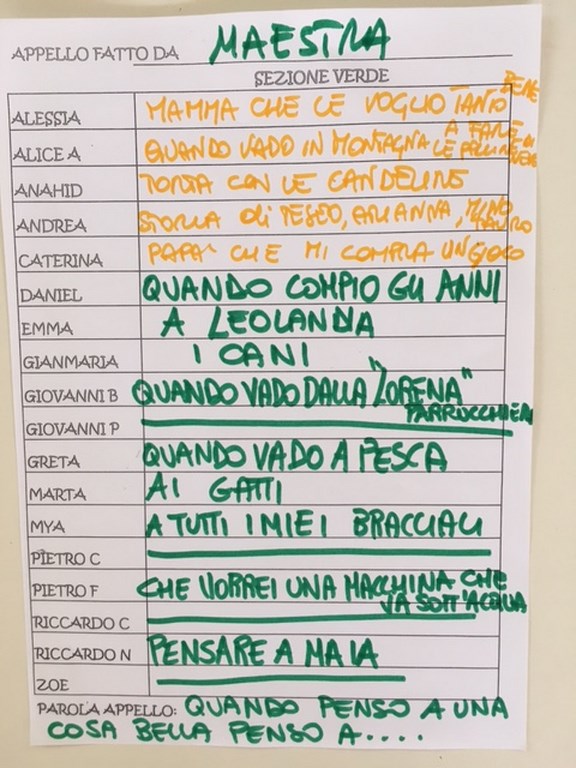 APPELLO FATTO DA MAESTRA
SEZIONE VERDE
ALESSIA MAMMA CHE LE VOGLIO TANTO BENE
ALICE A QUANDO VADO IN MONTAGNA A FARE LE PALLINE DI NEVE
ANAHID TORTA CON LE CANDELINE
ANDREA STORIA di TESEO, ARIANNA, MINOTAURO
CATERINA PAPA' CHE MI COMPRA UN GIOCO
DANIEL QUANDO COMPIO GLI ANNI
EMMA A LEOLANDIA
GIANMARIA I CANI
GIOVANNI B QUANDO VADO DALLA "LORENA" PARRUCCHIERA
GIOVANNI P
GRETA QUANDO VADO A PESCA
MARTA AI GATTI
MYA A TUTTI I MIEI BRACCIALI
PIETRO C
PIETRO F CHE VORREI UNA MACCHINA CHE VA SOTT'ACQUA
RICCARDO C
RICCARDO N PENSARE A MAIA
ZOE
PAROLA APPELLO: QUANDO PENSO A UNA
COSA BELLA PENSO A....